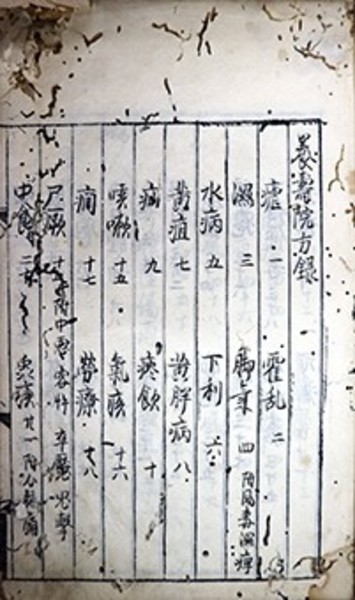 養壽院方録
瘧 一 霍乱 二
濕 三 脚氣 四 附風毒濕痺
水病 五 下利 六
黄疸 七 黄胖病 八
九 痰飲 十
咳嗽 十五 氣痰 十六
癇 十七 勞療 十八
尸厥 附中惡客忤 卒魘鬼擊
中 二十 廿一 附